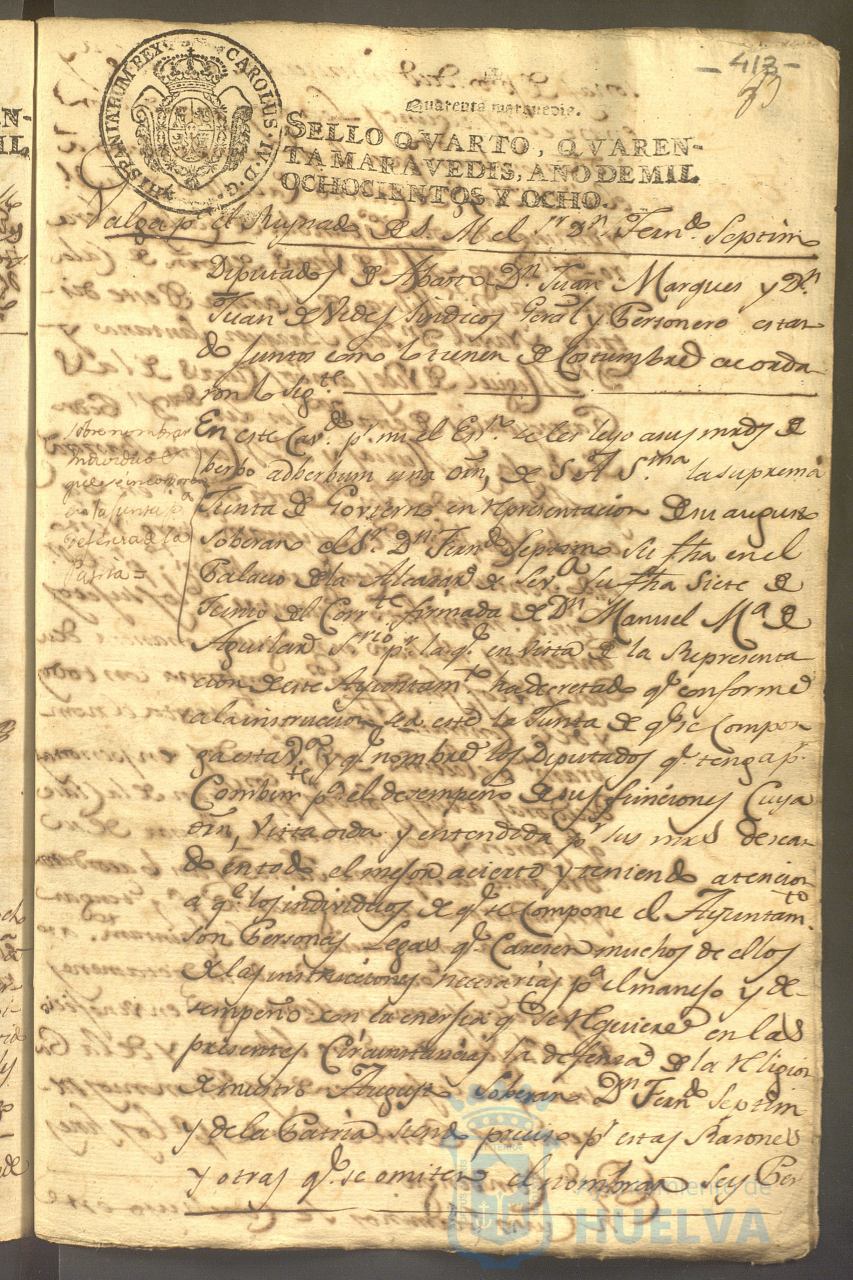 HISPANIARUM REX CAROLUS IV D. G.
- 413 -
Quarenta maravedis.
SELLO QVARTO, QVAREN-
TA MARAVEDIS, AÑO DE MIL
OCHOCIENTOS Y OCHO.
Valga pr. el Reynado de S. M el Sr. Dn. Fernd. Septimo
Diputados de Abasto Dn. Juan Marques y Dn.
Juan de Vides Sindicos Geral y Personero estan
do juntos como lo tienen de Costumbre acorda
ron lo sigte.
En este Cavdo. pr. mi el Esno. se les leyo a sus mrds de
berbo adberbum una orn, de S. A. Sma. la suprema
Junta de Govierno en representacion de nu augusto
soberano el Sr. Dn. Fernd. Septimo su fha en el
Palacio de la Alcazar de Seva. su fha siete de
Junio del Corrte firmada de Dn. Manuel Ma. de
Aguilar Srio pr. la q. en vista de la Representa
cion de este Ayuntamto. ha decretado q. conforme
a la instruccion sea este la Junta de q. se compon
ga esta Va. y q. nombre los Diputados q. tenga pr.
Combinte pa. el desempeño de sus funciones Cuya
orn, vista oida y entendida pr. sus mrds desean
do en todo el mejor acierto y teniendo atencion
a q. los individuos de q. se compone el Ayuntamto
son Personas Legas q. Carecen muchos de ellos
de las instrucciones necesarias pa. el manejo y de-
sempeño con la enerjia q. se requiere en las
presentes Circunstancias la defensa de la religion
de nuestro Augusto Soberano Dn. Fernd. Septimo
y de la Patria siendo preciso pr. estas Rasones
y otras q. se omiten el nombrar seis Per
sobre nombrar
individuos
que se incorporen
en la Junta pa.
defensa de la
Patria =
Ayuntamiento de
HUELVA